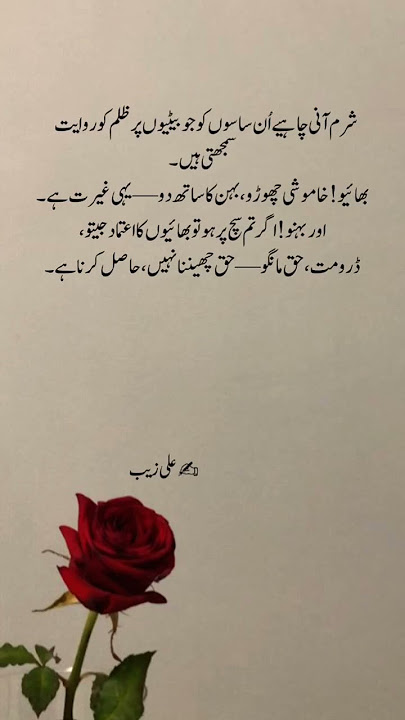 شرم آنی چاہیے اُن ساسوں کو جو بیٹیوں پر ظلم کو روایت
سمجھتی ہیں۔
بھائیو! خاموشی چھوڑو، بہن کا ساتھ دو — یہی غیرت ہے۔
اور بہنو! اگر تم سچ پر ہو تو بھائیوں کا اعتماد جیتو،
ڈرو مت، حق مانگو — حق چھیننا نہیں، حاصل کرنا ہے۔
✍️ علی زیب